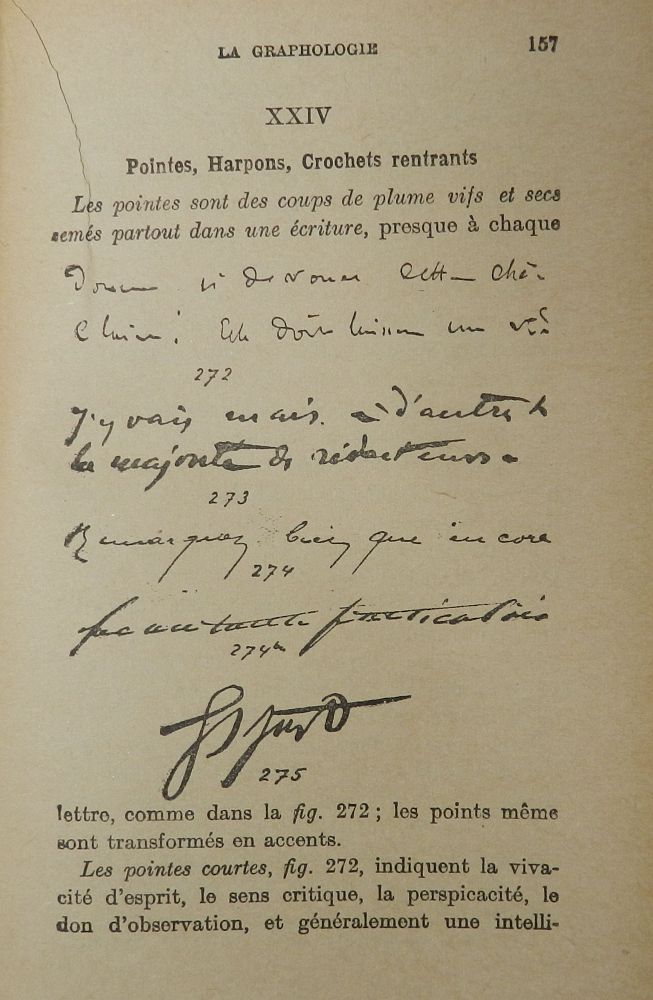 LA GRAPHOLOGIE 157
XXIV
Pointes, Harpons, Crochets rentrants
Les pointes sont des coups de plume vifs et secs
semés partout dans une écriture, presque à chaque
272
J'y vais mais à d'autres
la majorité des rédacteurs
273
Remarquez bien que encore
274
274bis
275
lettre, comme dans la fig. 272 ; les points même
sont transformés en accents.
Les pointes courtes, fig. 272, indiquent la viva-
cité d'esprit, le sens critique, la perspicacité, le
don d'observation, et généralement une intelli-